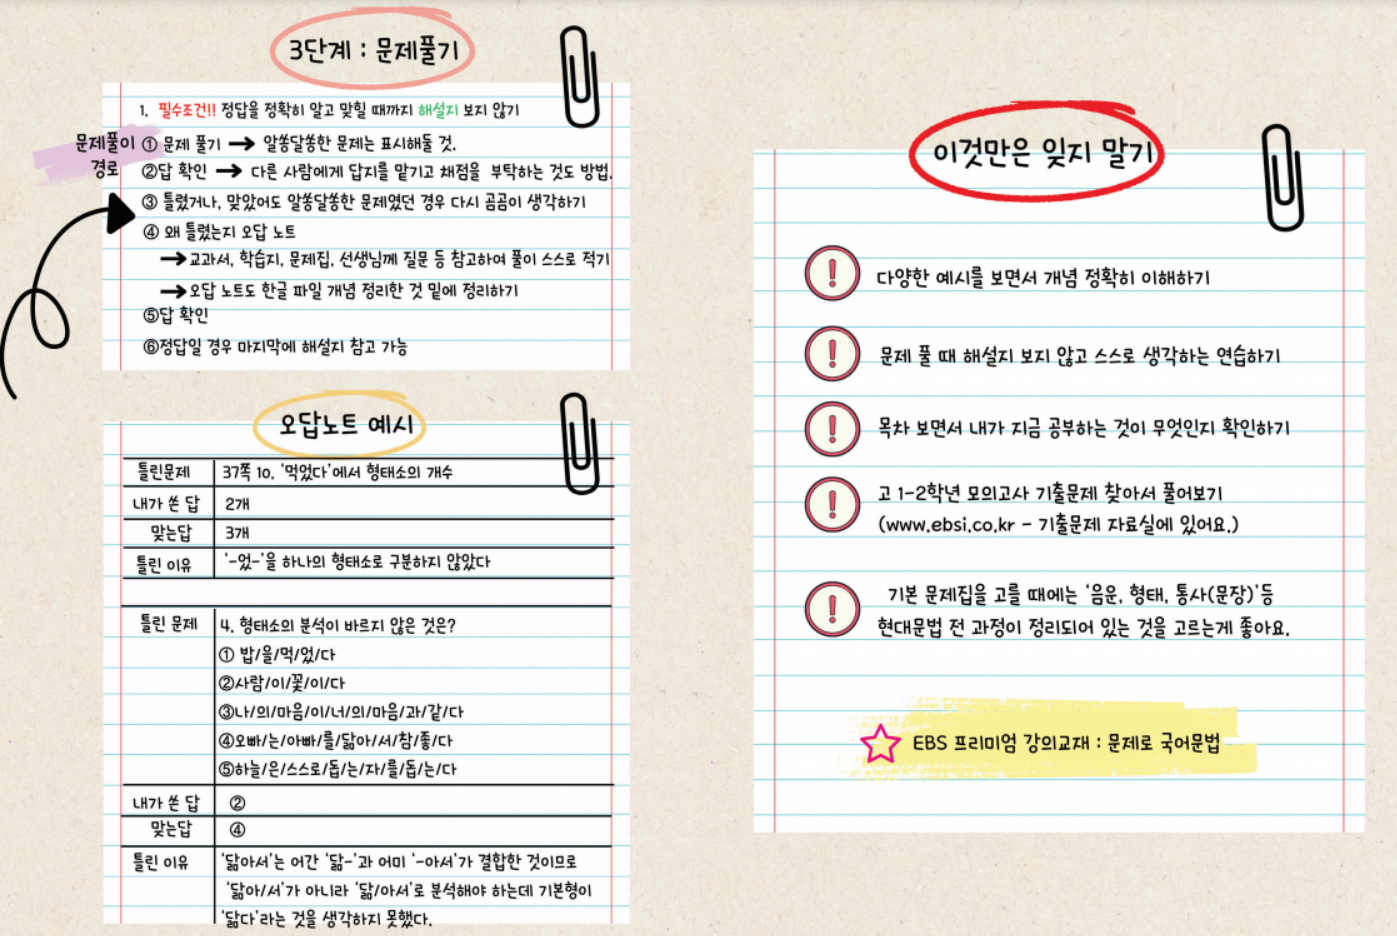 3단계 : 문제풀기
1. 필수조건!! 정답을 정확히 알고 맞힐 때까지 해설지 보지 않기
문제풀이
경로
① 문제 풀기 → 알쏭달쏭한 문제는 표시해둘 것.
②답 확인 → 다른 사람에게 답지를 맡기고 채점을 부탁하는 것도 방법.
③ 틀렸거나, 맞았어도 알쏭달쏭한 문제였던 경우 다시 곰곰이 생각하기
④ 왜 틀렸는지 오답 노트
→교과서, 학습지, 문제집, 선생님께 질문 등 참고하여 풀이 스스로 적기
→오답 노트도 한글 파일 개념 정리한 것 밑에 정리하기
⑤답 확인
⑥정답일 경우 마지막에 해설지 참고 가능
오답노트 예시
틀린문제 37쪽 10. '먹었다'에서 형태소의 개수
내가 쓴 답 2개
맞는답 3개
틀린 이유 '-었-'을 하나의 형태소로 구분하지 않았다
틀린 문제 4. 형태소의 분석이 바르지 않은 것은?
① 밥/을/먹/었/다
②사람/이/꽃/이/다
③나/의/마음/이/너/의/마음/과/같/다
④오빠/는/아빠/를/닮아/서/참/좋/다
⑤하늘/은/스스로/돕/는/자/를/돕/는/다
내가 쓴 답 ②
맞는답 ④
틀린 이유 '닮아서'는 어간 '닮-'과 어미 '-아서'가 결합한 것이므로
'닮아/서'가 아니라 '닮/아서'로 분석해야 하는데 기본형이
'닮다'라는 것을 생각하지 못했다.
이것만은 잊지 말기
다양한 예시를 보면서 개념 정확히 이해하기
문제 풀 때 해설지 보지 않고 스스로 생각하는 연습하기
목차 보면서 내가 지금 공부하는 것이 무엇인지 확인하기
고 1-2학년 모의고사 기출문제 찾아서 풀어보기
(www.ebsi.co.kr - 기출문제 자료실에 있어요.)
기본 문제집을 고를 때에는 '음운, 형태, 통사(문장)'등
현대문법 전 과정이 정리되어 있는 것을 고르는게 좋아요.
EBS 프리미엄 강의교재 : 문제로 국어문법